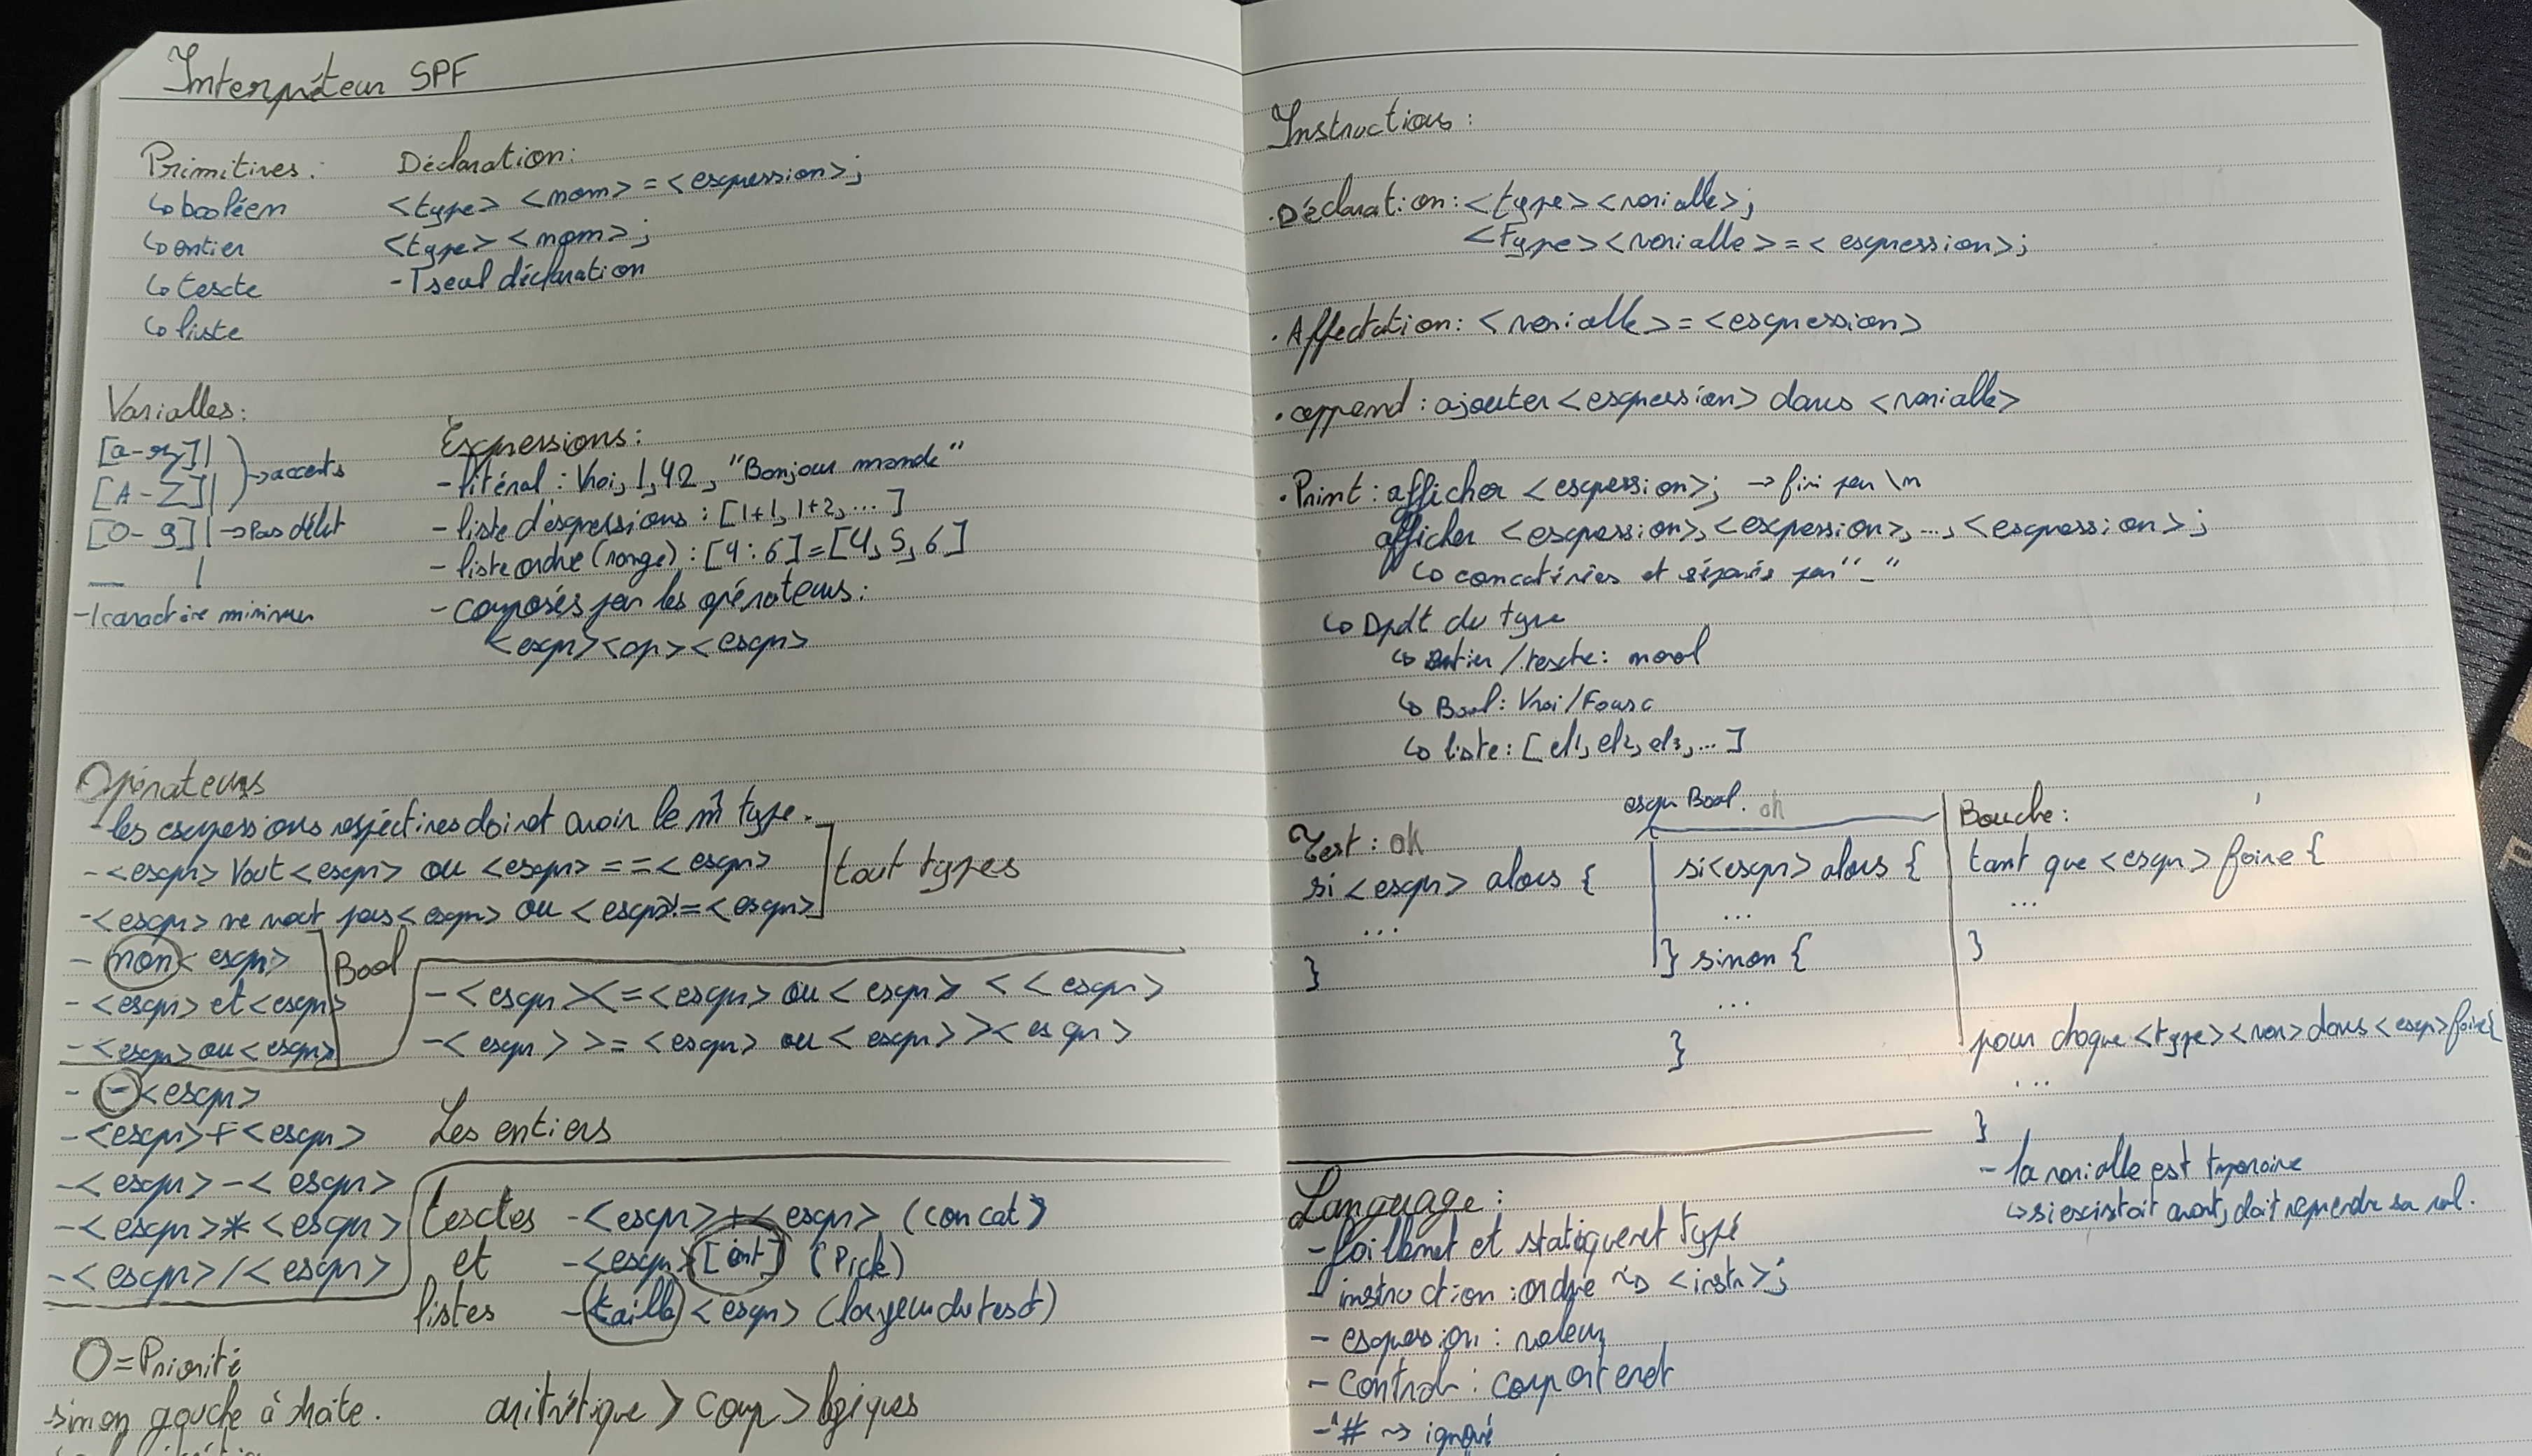 Interpréteur SPF
Primitives :
↳ booléen
↳ entier
↳ texte
↳ liste
Déclaration:
<type> <nom> = <expression>;
<type> <nom>;
- 1 seul déclaration
Variables:
[a-z]|
[A-Z]| → accents
[0-9]| → Pas début
_ |
- 1 caractère minimum
Expressions:
- litéral : Vrai, 1, 42, "Bonjour monde"
- liste d'expressions : [1+1, 1+2, ...]
- liste ordre (range) : [4:6] = [4, 5, 6]
- composés par les opérateurs :
<expr><op><expr>
Opérateurs
- les expressions respectives doivent avoir le m̂ type.
- <expr> Vaut <expr> ou <expr> == <expr>
- <expr> ne vaut pas <expr> ou <expr> != <expr>
tout types
- non <expr>
- <expr> et <expr>
- <expr> ou <expr>
Bool
- <expr> <= <expr> ou <expr> < <expr>
- <expr> >= <expr> ou <expr> > <expr>
- - <expr>
- <expr> + <expr>
- <expr> - <expr>
- <expr> * <expr>
- <expr> / <expr>
Les entiers
textes et listes
- <expr> + <expr> (concat)
- <expr> [int] (Pick)
- taille <expr> (largeur du text)
O = Priorité
sinon gauche à droite.
aritmétique > comp > logiques
Instructions :
· Déclaration: <type><variable>;
<Type><variable> = <expression>;
· Affectation: <variable> = <expression>
· append : ajouter <expression> dans <variable>
· Print : afficher <expression>; → fini par \n
afficher <expression>, <expression>, ..., <expression>;
↳ concaténées et séparés par "_"
↳ Dpdt du type
↳ entier / texte: normal
↳ Bool: Vrai/Faux
↳ liste: [el1, el2, el3, ...]
Test : ok
si <expr> alors {
...
}
expr Bool. ok
si <expr> alors {
...
} sinon {
...
}
Boucle:
tant que <expr> faire {
...
}
pour chaque <type> <var> dans <expr> faire {
...
}
- la variable est temporaire
↳ si existait avant, doit reprendre sa val.
Language :
- faiblement et statiquement typé
- instruction : ordre ~> <instr>;
- expression : valeur
- Control : comportement
- # ~> ignoré